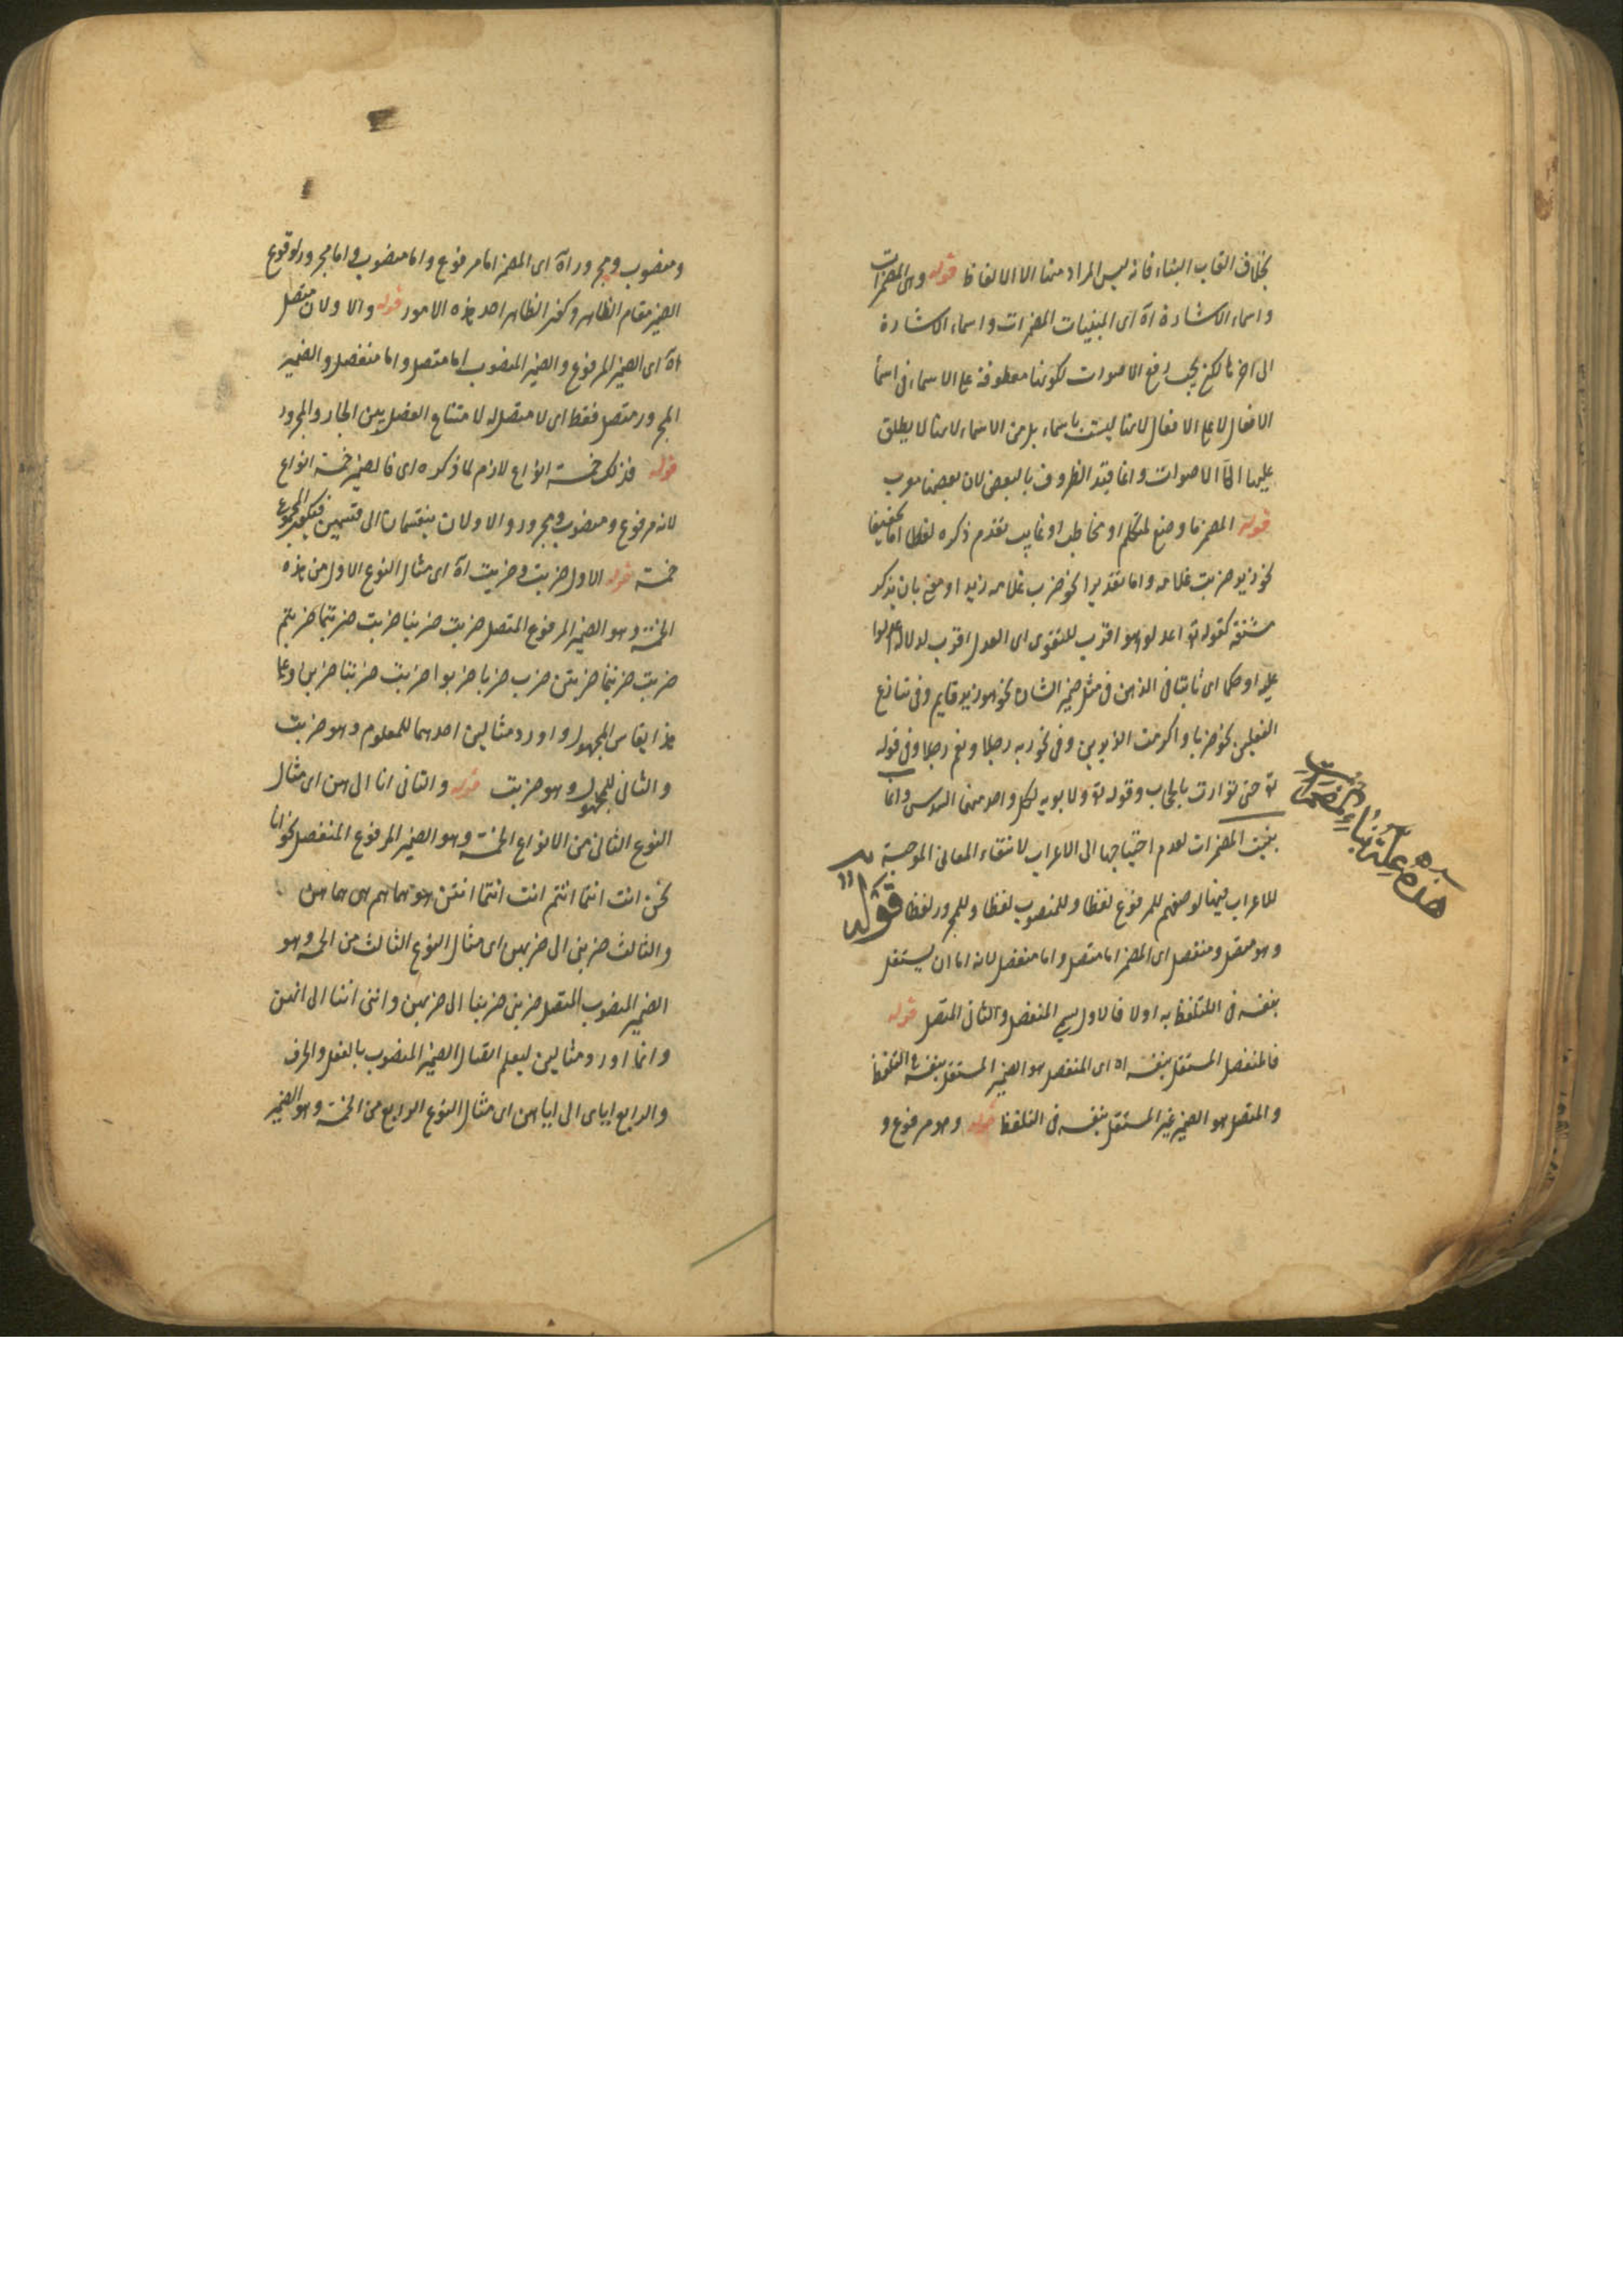 بخلاف القاب البناء فانه ليس المراد منها الا الالفاظ قوله وهى المضمرات
واسماء الاشارة اه اى المبنيات المضمرات واسماء الاشارة
الى اخرها لكن يجب رفع الاصوات لكونها معطوفة على الاسماء فى اسما
الافعال لا على الافعال لانها ليست باسماء بل من الاسماء لانها لا يطلق
عليها الا الاصوات وانما قيد الظروف بالبعض لان بعضها معرب
قوله المضمر ما وضع لمتكلم او مخاطب او غايب تقدم ذكره لفظا اما تحقيقا
نحو زيد ضربت غلامه واما تقديرا نحو ضرب غلامه زيد او معنى بان يذكر
مشتقه كقوله تع اعدلوا هو اقرب للتقوى اى العدل اقرب لدلالة اعدلوا
عليه او حكما اى ثابتا فى الذهن فى مثل ضمير الشان نحو هو زيد قايم وفى تنازع
الفعلين نحو ضربا واكرمت الزيدين وفى نحو ربه رجلا ونعم رجلا وفى قوله
تع حتى توارت بالحجاب وقوله تع ولابويه لكل واحد منهما السدس وانما
بنيت المضمرات لعدم احتياجها الى الاعراب لانتفاء المعانى الموجبة
للاعراب فيها لوضعهم للمرفوع لفظا وللمنصوب لفظا وللمجرور لفظا قوله
وهو متصل ومنفصل اى المضمر اما متصل واما منفصل لانه اما ان يستقل
بنفسه فى التلفظ به اولا فالاول يسمى المنفصل والثانى المتصل قوله
فالمنفصل المستقل بنفسه اه اى المنفصل هو الضمير المستقل بنفسه فى التلفظ
والمتصل هو الضمير غير المستقل بنفسه فى التلفظ قوله وهو مرفوع و
هذه علة بناء المضمرات
ومنصوب ومجرور اه اى المضمر اما مرفوع واما منصوب واما مجرور لوقوع
الضمير مقام الظاهر وكون الظاهر احد هذه الامور قوله والاولان متصل
اه اى الضمير المرفوع والضمير المنصوب اما متصل واما منفصل والضمير
المجرور متصل فقط اى لا منفصل له لامتناع الفصل بين الجار والمجرور
قوله فذلك خمسة انواع لازم لما ذكره اى فالضمير خمسة انواع
لانه مرفوع ومنصوب ومجرور والاولان ينقسمان الى قسمين فيكون المجموع
خمسة قوله الاول ضربت وضربت اه اى مثال النوع الاول من هذه
الخمسة وهو الضمير المرفوع المتصل ضربت ضربنا ضربت ضربتما ضربتم
ضربت ضربتما ضربتن ضرب ضربا ضربوا ضربت ضربتا ضربن وعلى
هذا يقاس المجهول واورد مثالين احدهما للمعلوم وهو ضربت
والثانى للمجهول وهو ضربت قوله والثانى انا الى هن اى مثال
النوع الثانى من الانواع الخمسة وهو الضمير المرفوع المنفصل نحو انا
نحن انت انتما انتم انت انتما انتن هو هما هم هى هما هن
والثالث ضربنى الى ضربهن اى مثال النوع الثالث من الخمسة وهو
الضمير المنصوب المتصل ضربنى ضربنا الى ضربهن واننى اننا الى انهن
وانما اورد مثالين ليعلم اتصال الضمير المنصوب بالفعل والحرف
والرابع اياى الى اياهن اى مثال النوع الرابع من الخمسة وهو الضمير